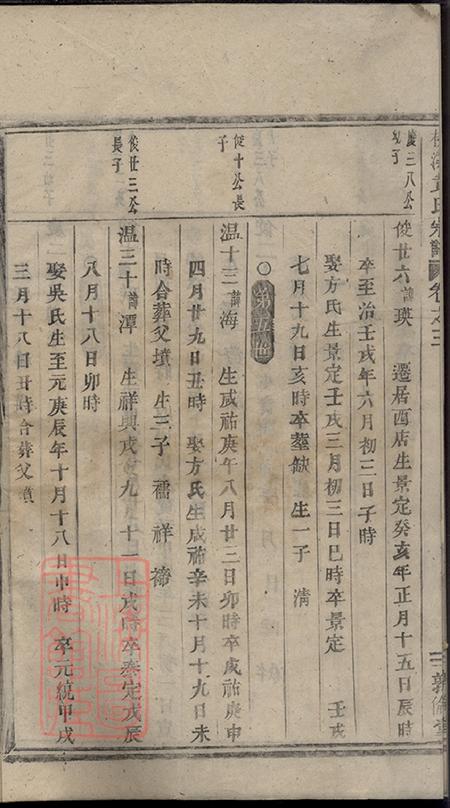 黃氏宗譜 卷之三
敦倫堂
慶三八公
幼子
俊廿六諱瑛 遷居酉店生景定癸亥年正月十五日辰時
卒至治壬戌年六月初三日子時
娶方氏生景定壬戌三月初三日巳時卒景定 壬戌
七月十九日亥時卒塟缺 生一子 淸
第五卷
俊十公長
子
温十三諱海 生咸祐庚午八月廿三日卯時卒咸祐庚申
四月廿九日丑時 娶方氏生咸祐辛未十月十九日未
時合葬父墳 生三子 禤 祥 禘
俊廿三公
長子
温三十諱潭 生祥興戊 九 十一日戌時卒泰定戊辰
八月十八日卯時
娶吳氏生至元庚辰年十月十八日申時 卒元統甲戌
三月十八日丑時合葬父墳